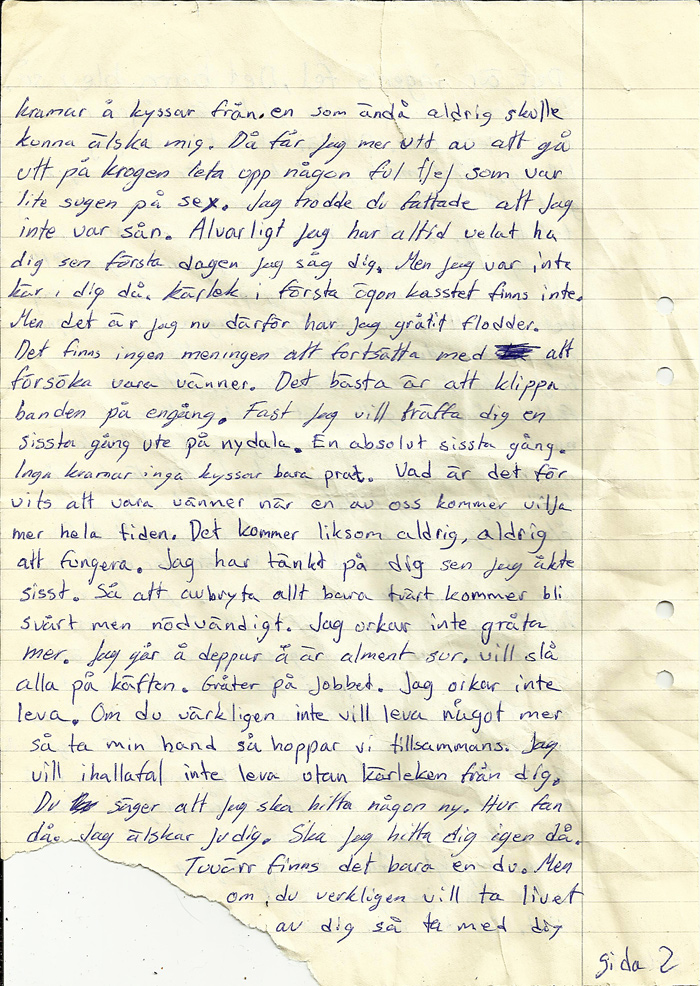 kramar å kyssar från en som ändå aldrig skulle
kunna älska mig. Då får jag mer utt av att gå
utt på krogen leta upp någon ful tjej som var
lite sugen på sex. Jag trodde du fattade att jag
inte var sån. Alvarligt jag har altid velat ha
dig sen första dagen jag såg dig. Men jag var inte
kär i dig då. kärlek i första ögon kasstet finns inte.
Men det är jag nu därför har jag gråtit flodder.
Det finns ingen meningen att fortsätta med att
försöka vara vänner. Det bästa är att klippa
banden på engång. Fast jag vill träffa dig en
sissta gång ute på nydala. En absolut sissta gång.
Inga kramar inga kyssar bara prat. Vad är det för
vits att vara vänner när en av oss kommer vilja
mer hela tiden. Det kommer liksom aldrig, aldrig
att fungera. Jag har tänkt på dig sen jag åkte
sisst. Så att avbryta allt bara tvärt kommer bli
svårt men nödvändigt. Jag orkar inte gråta
mer. Jag går å deppar å är alment sur. vill slå
alla på käften. Gråter på jobbet. Jag orkar inte
leva. Om du värkligen inte vill leva något mer
så ta min hand så hoppar vi tillsammans. Jag
vill ihallafal inte leva utan kärleken från dig.
Du säger att jag ska hitta någon ny. Hur fan
då. Jag älskar ju dig. Ska jag hitta dig igen då.
Tuvärr finns det bara en du. Men
om du verkligen vill ta livet
av dig så ta med dig
sida 2